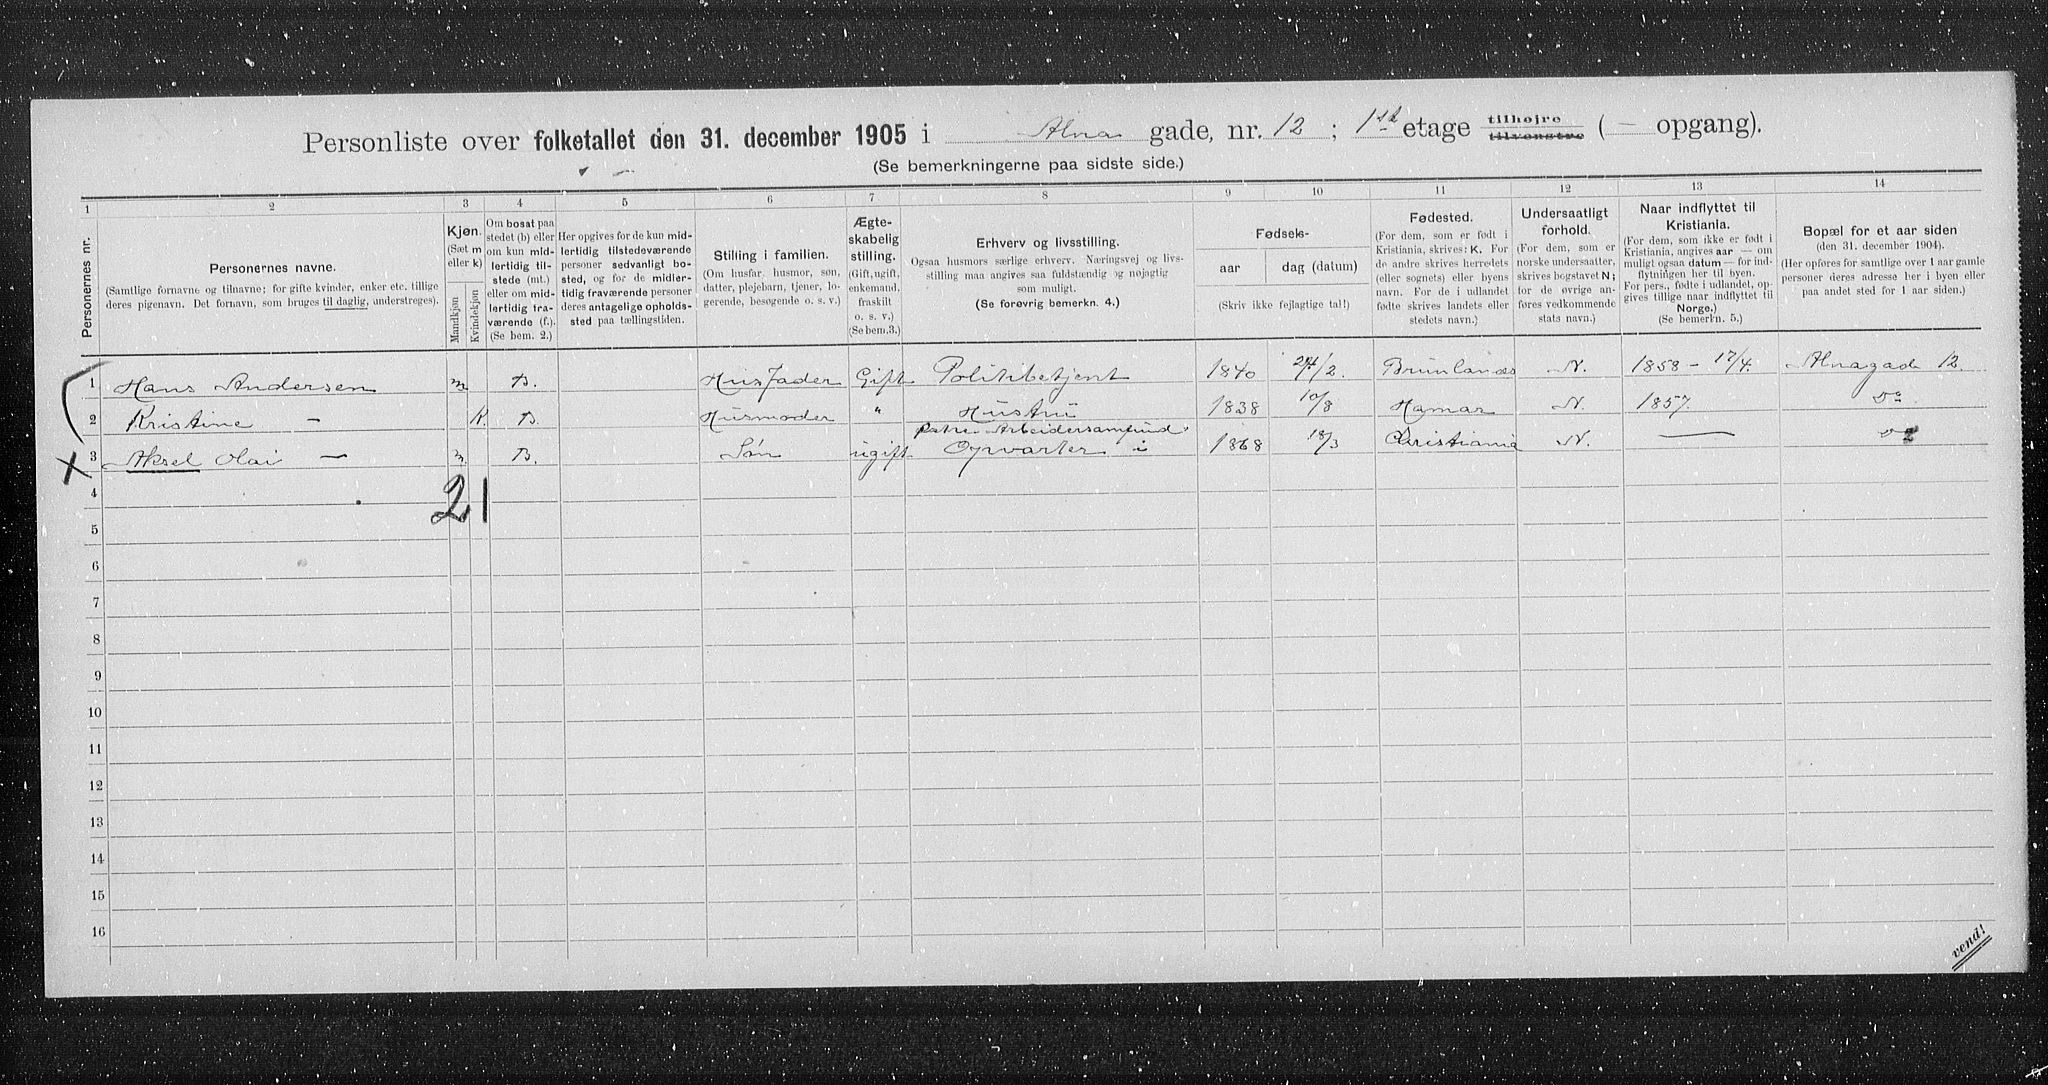 Personliste over folketallet den 31. december 1905 i Alna gade, nr. 12 ; 1ste etage tilhøjre tilvenstre ( — opgang).
(Se bemerkningerne paa sidste side.)
1 2 3 4 5 6 7 8 9 10 11 12 13 14
Personernes nr.
Personernes navne.
(Samtlige fornavne og tilnavne; for gifte kvinder, enker etc. tillige
deres pigenavn. Det fornavn, som bruges til daglig, understreges).
Kjøn.
(Sæt m
eller k)
Mandkjøn
Kvindekjøn
Om bosat paa
stedet (b) eller
om kun mid-
lertidig til-
stede (mt.)
eller om mid-
lertidig fra-
værende (f.).
(Se bem. 2.)
Her opgives for de kun mid-
lertidig tilstedeværende
personer sedvanligt bo-
sted, og for de midler-
tidig fraværende personer
deres antagelige opholds-
sted paa tællingstiden.
Stilling i familien.
(Om husfar, husmor, søn,
datter, plejebarn, tjener, lo-
gerende, besøgende o. s. v.)
Ægte-
skabelig
stilling.
(Gift, ugift,
enkemand,
fraskilt
o. s. v.)
(Se bem.3.)
Erhverv og livsstilling.
Ogsaa husmors særlige erhverv. Næringsvej og livs-
stilling maa angives saa fuldstændig og nøjagtig
som muligt.
(Se forøvrig bemerkn. 4.)
Fødsels-
aar
dag (datum)
(Skriv ikke fejlagtige tal!)
Fødested.
(For dem, som er født i
Kristiania, skrives: K. For
de andre skrives herredets
(eller sognets) eller byens
navn. For de i udlandet
fødte skrives landets eller
stedets navn.)
Undersaatligt
forhold.
(For dem, som er
norske undersaatter,
skrives bogstavet N;
for de øvrige an-
føres vedkommende
stats navn.)
Naar indflyttet til
Kristiania.
(For dem, som ikke er født i
Kristiania, angives aar — om
muligt ogsaa datum — for ind-
flytningen her til byen.
For pers., fødte i udlandet, op-
gives tillige naar indflyttet til
Norge.)
(Se bemerkn. 5.)
Bopæl for et aar siden
(den 31. december 1904).
(Her opføres for samtlige over 1 aar gamle
personer deres adresse her i byen eller
paa andet sted for 1 aar siden.)
1 Hans Andersen m B. Husfader Gift Politibetjent 1840 24/2. Brunlanæs N. 1858 – 17/4. Alnagade 12.
2 Kristine — K. B. Husmoder " Hustru 1838 10/8 Hamar N. 1857. Do
Arbeidersamfund
3 Aksel Olai — m. B. Søn ugift Opvarter i 1868 18/3 Christiania N. — Do
4
21
5
6
7
8
9
10
11
12
13
14
15
16
vend!